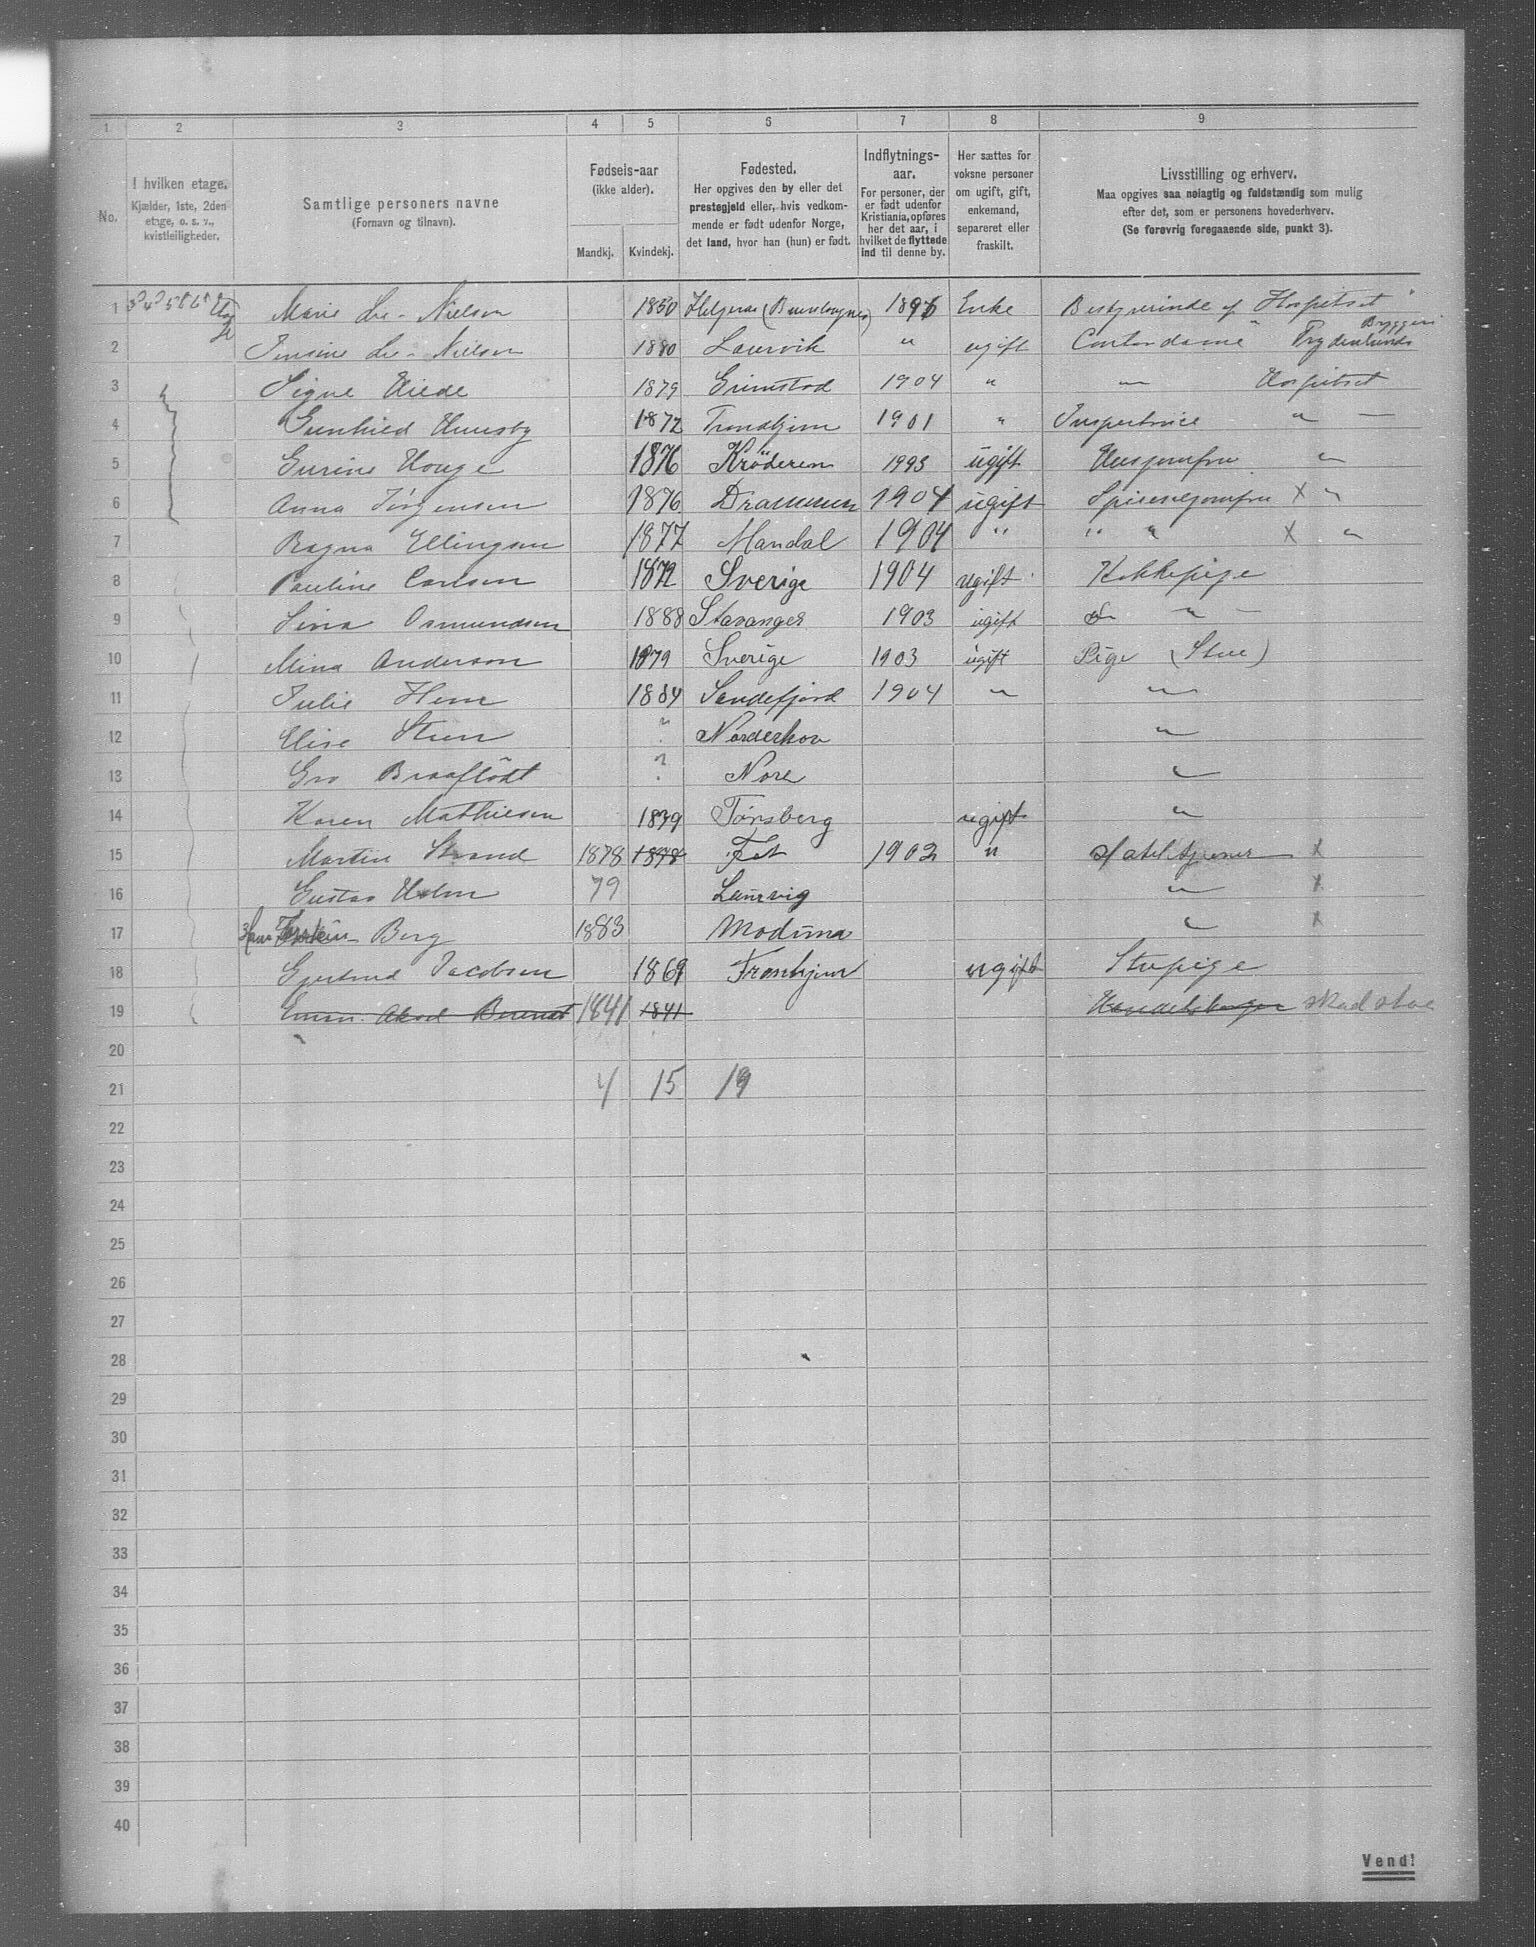 1 2 3 4 5 6 7 8 9
No.
I hvilken etage.
Kjælder, 1ste, 2den
etage, o. s. v.,
kvistleiligheder.
Samtlige personers navne
(Fornavn og tilnavn).
Fødsels-aar
(ikke alder).
Mandkj. Kvindekj.
Fødested.
Her opgives den by eller det
prestegjeld eller, hvis vedkom-
mende er født udenfor Norge,
det land, hvor han (hun) er født.
Indflytnings-
aar.
For personer, der
er født udenfor
Kristiania, opføres
her det aar, i
hvilket de flyttede
ind til denne by.
Her sættes for
voksne personer
om ugift, gift,
enkemand,
separeret eller
fraskilt.
Livsstilling og erhverv.
Maa opgives saa nøiagtig og fuldstændig som mulig
efter det, som er personens hovederhverv.
(Se forøvrig foregaaende side, punkt 3).
1 Marie Lie-Nielsen 1850 1896 Enke Bestyrerinde af Hospitset
2 Jensine Lie-Nielsen 1880 Laurvik " ugift Contordame Frydenlunds Bryggeri
3 Signe 1879 Grimstad 1904 " " Hospitset
4 Gunhild 1872 Trondhjem 1901 " Inspectrice "
5 Gurine Houge 1876 Krøderen ugift Husjomfru "
6 Anna Jørgensen 1876 Drammen 1904 ugift X "
7 Ragna Ellingsen 1877 Mandal 1904 " " " X "
8 Pauline Carlsen 1872 Sverige 1904 ugift Kokkepige
9 Osmundsen 1888 Stavanger 1903 ugift "
10 Mina Anderson 1879 Sverige 1903 ugift Pige (Stue)
11 Julie Hem 1884 Sandefjord 1904 " "
12 Elise Steen ? Norderhov "
13 Gro Braaflødt ? Nore "
14 Karen Mathiesen 1879 Tønsberg ugift "
15 Martin Strand 1878 1878 Fet 1902 " Hotel tjener X
16 Gustav Holm 79 Laurvig " X
17 Hans Berg 1883 Modum " X
18 Gjertrud Jacobsen 1869 Tronhjem ugift Stupige
19 1841 1841 skal stae
20
21 4 15 19
22
23
24
25
26
27
28
29
30
31
32
33
34
35
36
37
38
39
40
Vend!